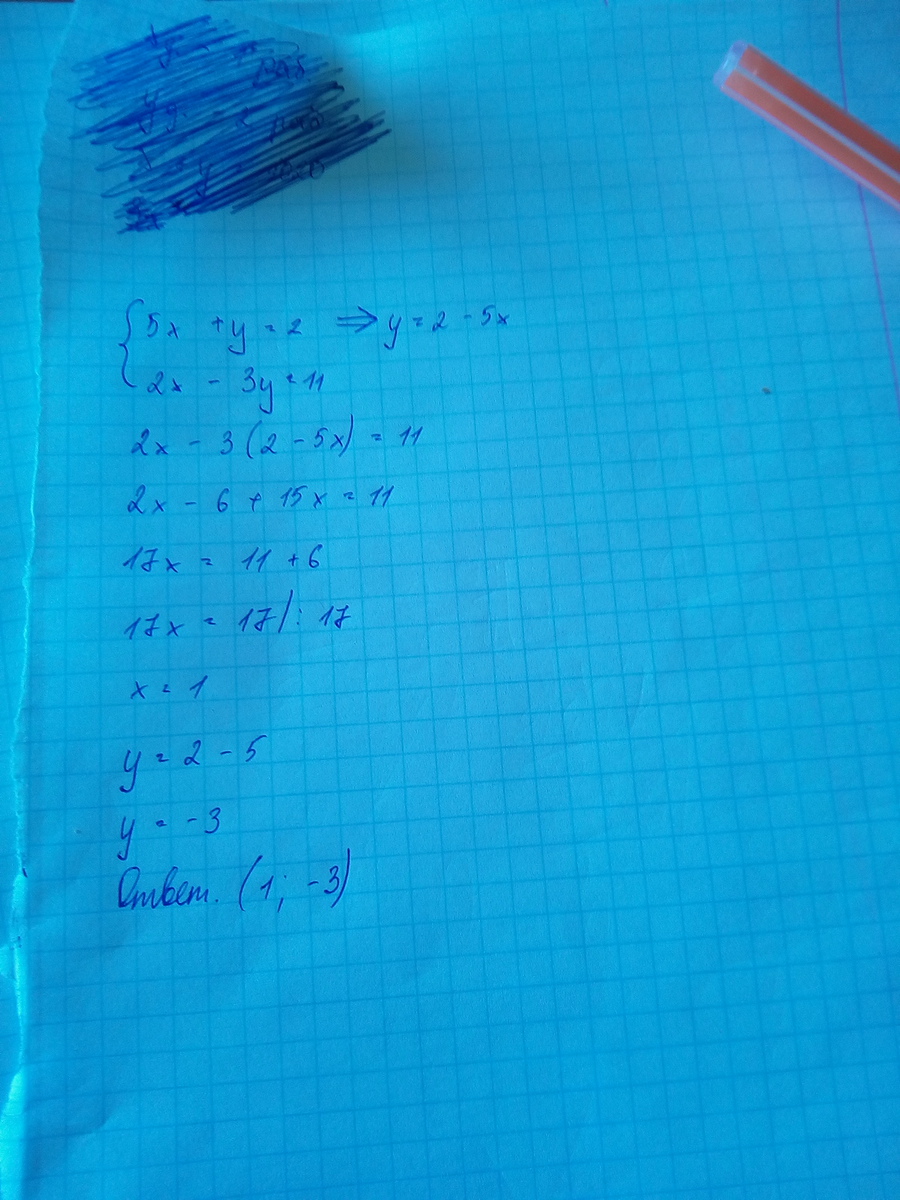 5x + y = 2 ⇒ y = 2 - 5x
2x - 3y = 11
2x - 3(2 - 5x) = 11
2x - 6 + 15x = 11
17x = 11 + 6
17x = 17 |: 17
x = 1
y = 2 - 5
y = -3
Ответ. (1; -3)